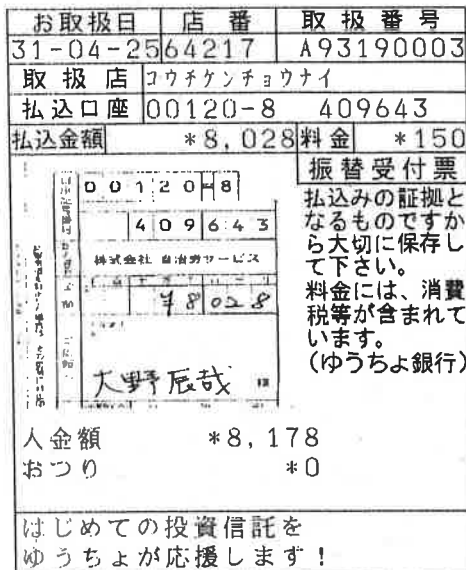 お取扱日 店番 取扱番号
31-04-25 64217 A93190003
取扱店 コウチケンチョウナイ
払込口座 00120-8 409643
払込金額 *8,028 料金 *150
振替受付票
払込みの証拠と
なるものですか
ら大切に保存し
て下さい。
料金には、消費
税等が含まれて
います。
(ゆうちょ銀行)
00120-8
409643
株式会社 自治労サービス
¥8028
大野辰哉
入金額 *8,178
おつり *0
はじめての投資信託を
ゆうちょが応援します!